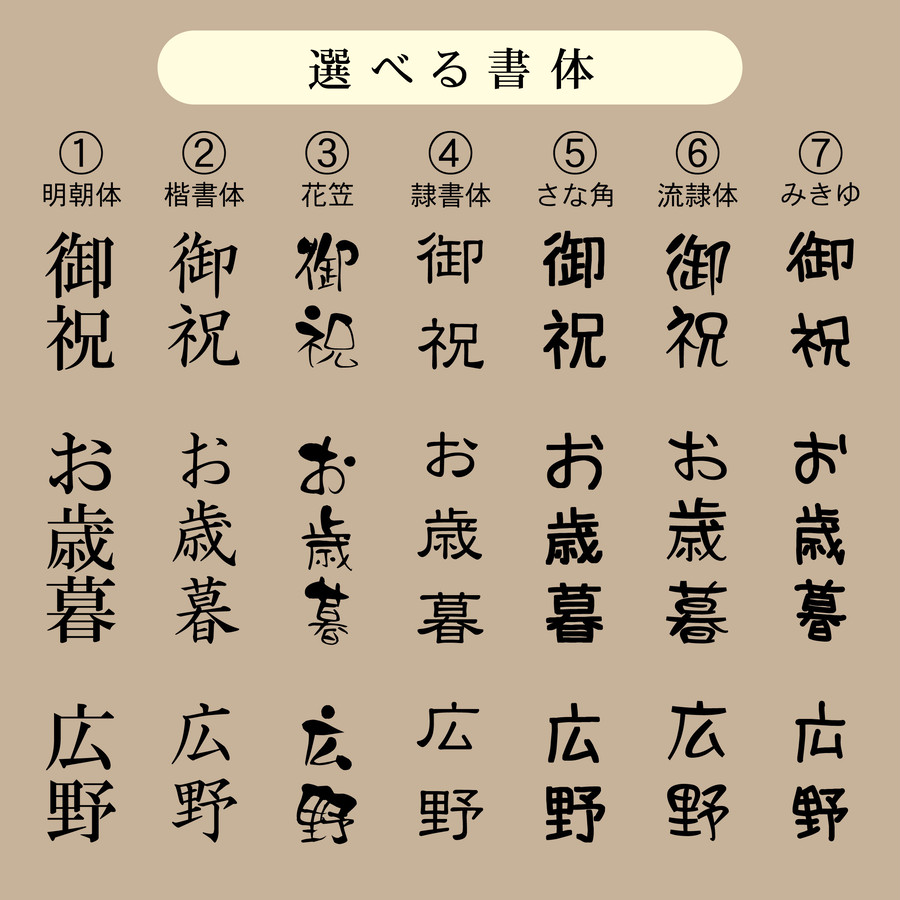 選べる書体
① ② ③ ④ ⑤ ⑥ ⑦
明朝体 楷書体 花笠 隷書体 さな角 流隷体 みきゆ
御祝 御祝 御祝 御祝 御祝 御祝 御祝
お歳暮 お歳暮 お歳暮 お歳暮 お歳暮 お歳暮 お歳暮
広野 広野 広野 広野 広野 広野 広野